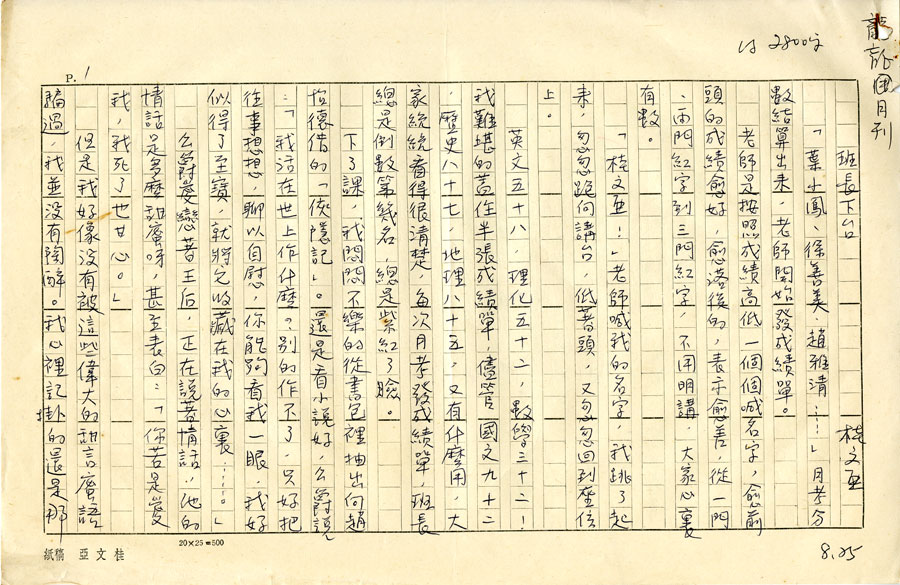 龍龍園月刊
約 2800字
P. 1
班長下台
桂文亞
「葉小鳳、徐善美、趙雅清……」月考分
數結算出來，老師開始發成績單。
老師是按照成績高低一個個喊名字，愈前
頭的成績愈好，愈落後的，表示愈差，從一門
、兩門紅字到三門紅字，不用明講，大家心裏
有數。
「桂文亞！」老師喊我的名字，我跳了起
來，忽忽跑向講台，低著頭，又忽忽回到座位
上。
英文五十八，理化五十二，數學三十二！
我難堪的蓋住半張成績單，儘管國文九十二
，歷史八十七，地理八十五，又有什麼用，大
家統統看得很清楚，每次月考發成績單，班長
總是倒數第幾名，總是紫紅了臉。
下了課，我悶悶不樂的從書包裡抽出向趙
怡德借的「俠隱記」。還是看小說好，公爵說
：「我活在世上作什麼？別的作不了，只好把
往事想想，聊以自慰，你能夠看我一眼，我好
似得了至寶，就將它收藏在我的心裏……。」
公爵愛戀著王后，正在說著情話，他的
情話是多麼甜蜜呀，甚至表白：「你若是愛
我，我死了也甘心。」
但是我好像沒有被這些偉大的甜言蜜語
騙過，我並沒有陶醉。我心裡記掛的還是那
20×25=500
桂文亞稿紙
8.25